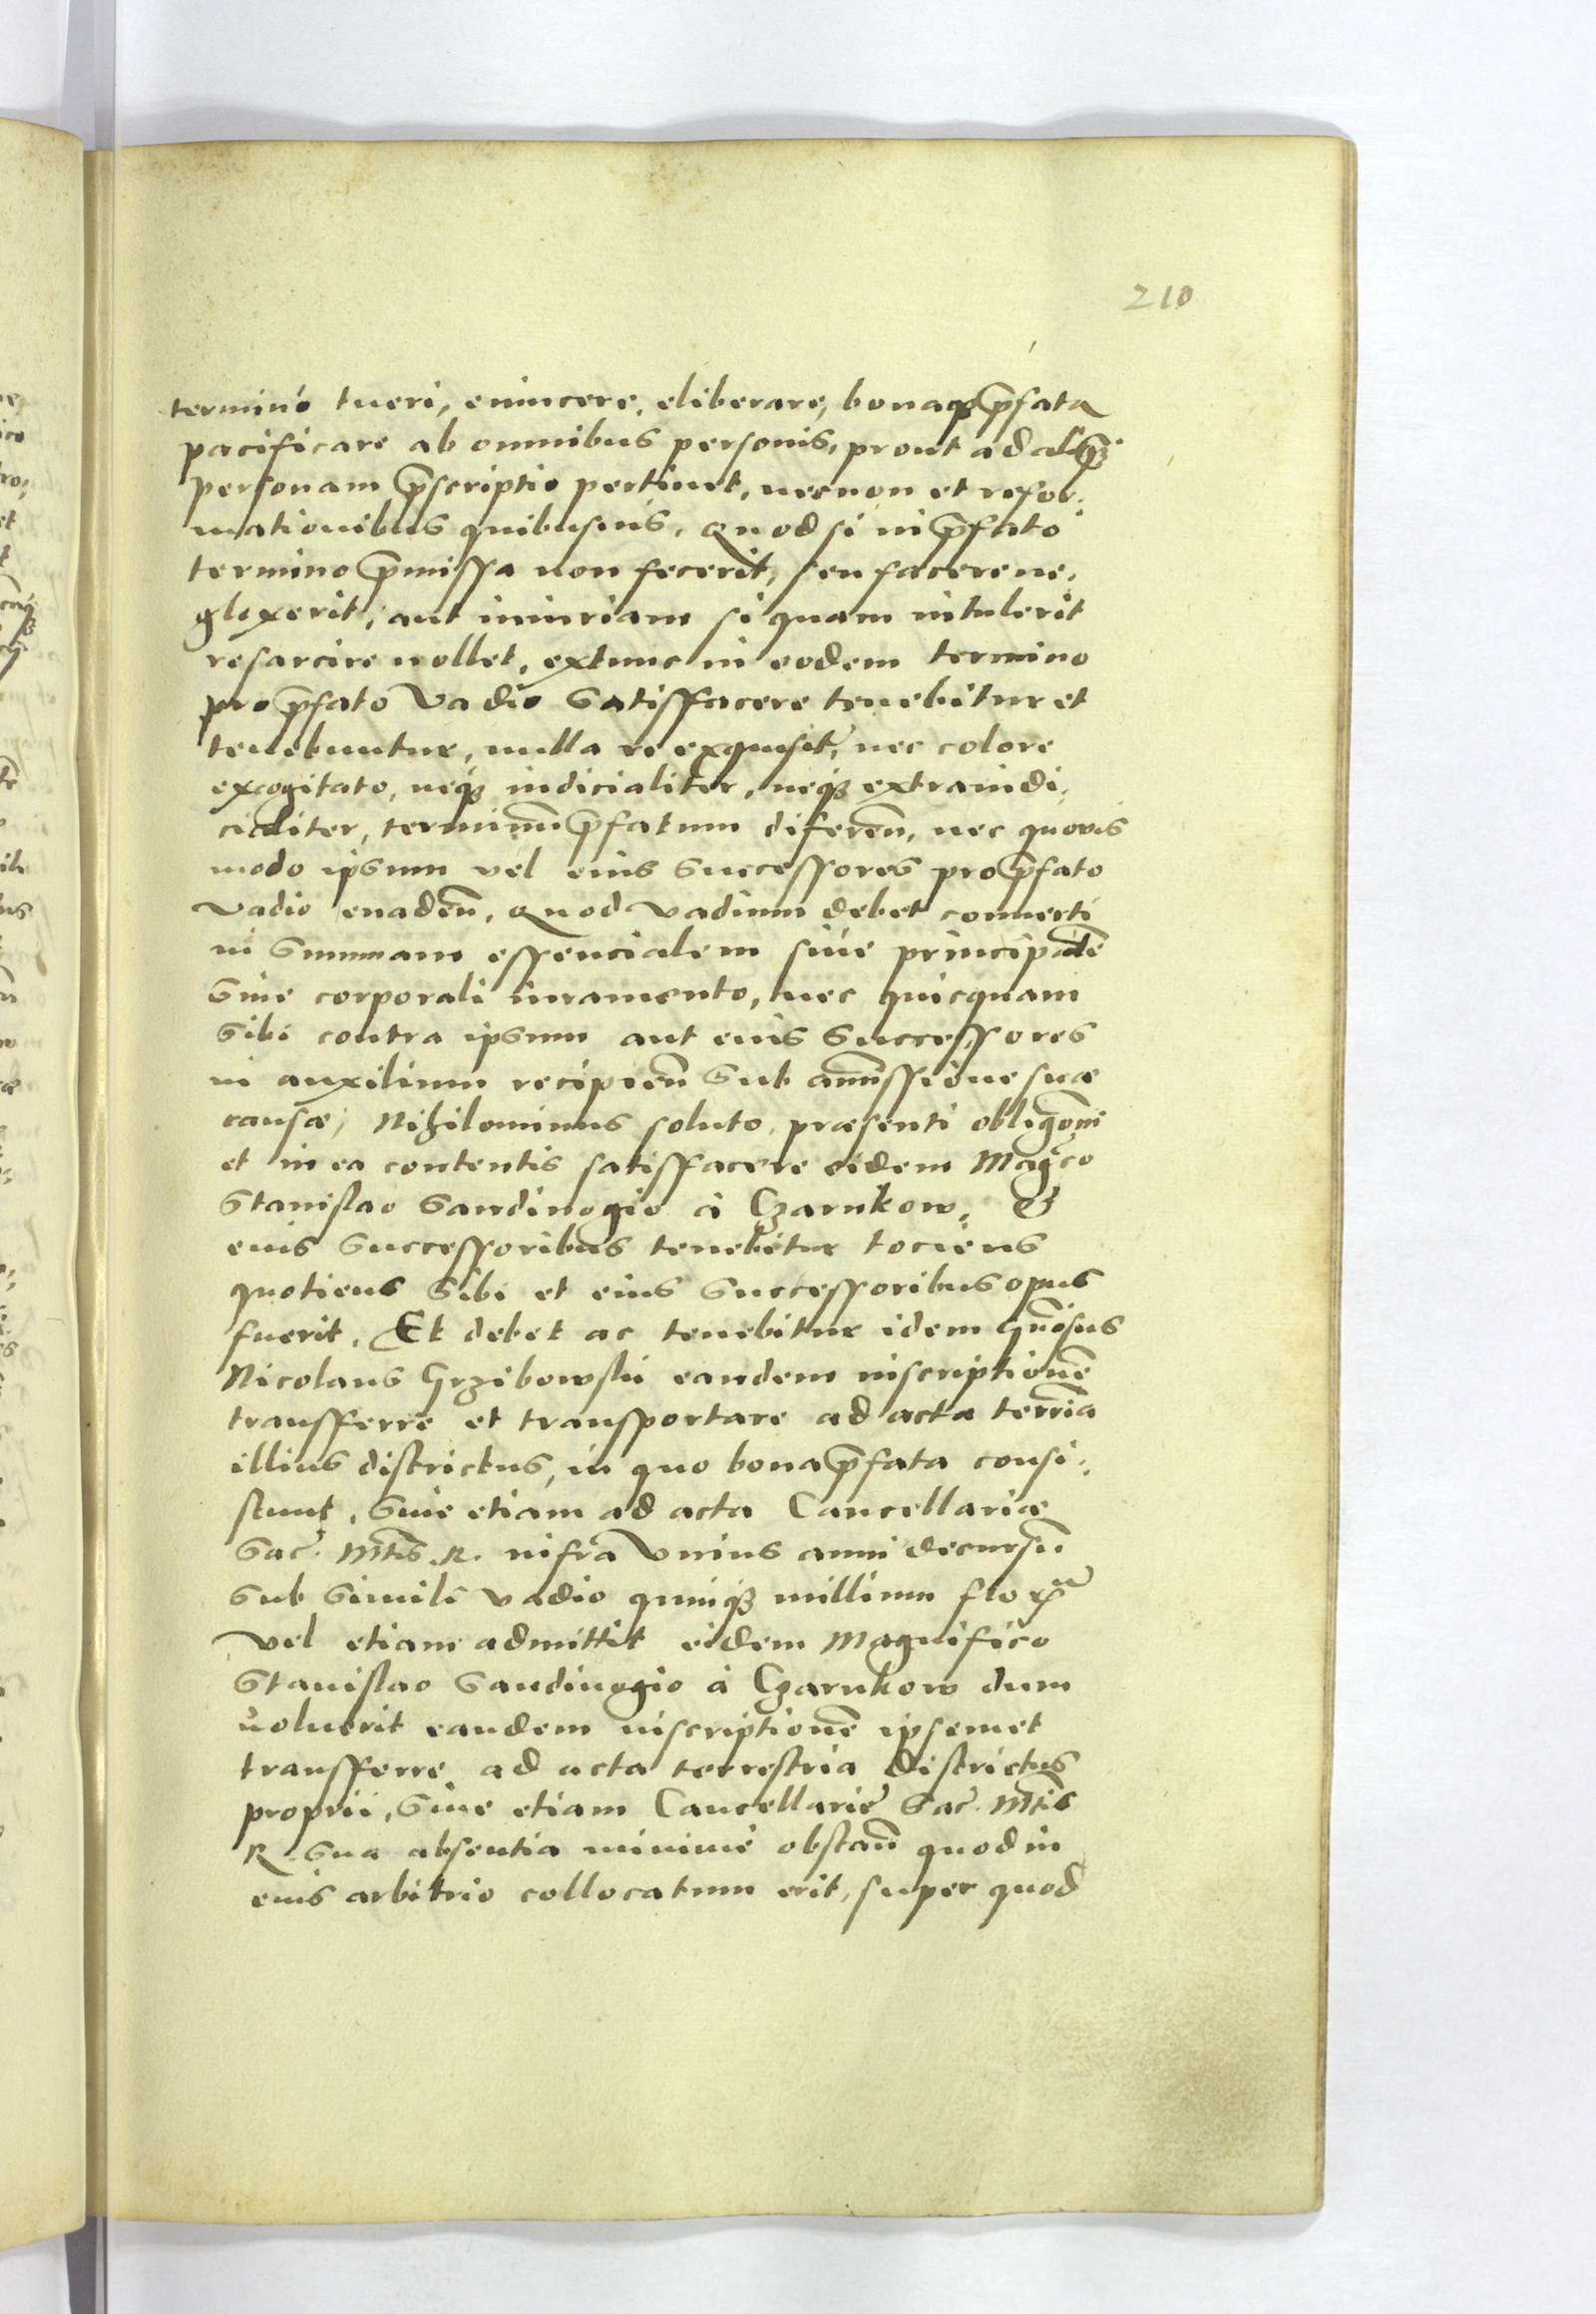 210
termino tueri, euincere, eliberare, bonaq̃ p̃fata
pacificare ab omnibus personis, prout ad
personam p̃scriptio pertinet, necnon et refor,
mationibus quibusuis, Quod si in p̃fato
termino p̃missa non fecerit, seu facere ne,
glexerit, aut iniuriam si quam intulerit
resarcire nollet, extunc in eodem termino
pro p̃fato Vadio satisffacere tenebitur et
tenebuntur, nulla re exquisit̃, nec colore
excogitato, neqȝ iudicialiter, neqȝ extraiudi,
cialiter, terminũ p̃fatum diferen̄, nec quouis
modo ipsum vel eius successores pro p̃fato
vadio euaden̄, Quod vadium debet conuerti
in summam essencialem siue principalẽ
sine corporali iuramento, nec quicquam
sibi contra ipsum aut eius successores
in auxilium recipien̄ sub amissione suæ
causæ, Nihilominus soluto, præsenti obligõni
et in ea contentis satisffacere eidem Mag̃co
Stanislao Sandiuogio à Czarnkow, &
eius successoribus tenebitur tociens
quotiens sibi et eius successoribus opus
fuerit. Et debet ac tenebitur idem Gñosus
Nicolaus Grzibowski eandem inscriptionẽ
transfferre et transportare ad acta terrĩa
illius districtus, in quo bona p̃fata consi,
stunt, siue etiam ad acta Cancellariæ
Sac̃. Mtis. R. infra Vnius anni decursũ
sub simili vadio quinqȝ millium
Vel etiam admittit eidem Magnifico
Stanislao Sandiuogio à Czarnkow dum
voluerit eandem inscriptionẽ ipsemet
transfferre ad acta terrestria districtus
proprii, siue etiam Cancellariẽ Sac̃. Mtis
R. sua absentia minimè obstan̄ quod in
eius arbitrio collocatum erit, super quod